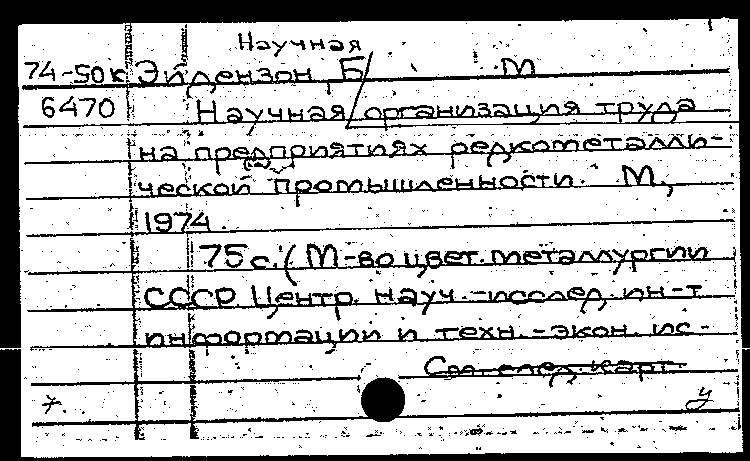 Научная
74-50к Эйдензон, Б/ М
6470 Научная/организация труда
на предприятиях редкометалли-
ческой промышленности. М.,
1974.
75 с. (М-во цвет. металлургии
СССР Центр. науч.-исслед. ин-т
информации и техн.-экон. ис-
См. след. карт.
у